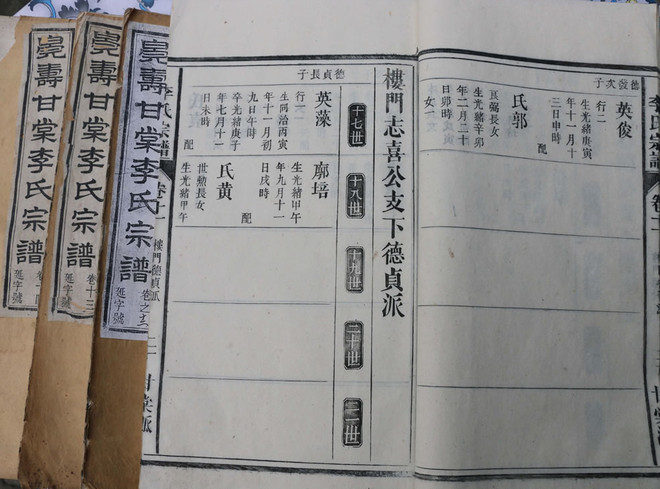 德發次子
英俊
行二
生光緒庚寅
年十一月十
三日申時
配
氏郭
良弼長女
生光緒辛卯
年二月二十
日卯時
女一
樓門志喜公支下德貞派
十七世
十八世
十九世
二十世
德貞長子
英藻
行一
生同治丙寅
年十一月初
九日午時
卒光緒庚子
年七月十一
日未時
配
廓培
生光緒甲午
年九月十一
日戌時
配
氏黃
世勳長女
生光緒甲午
李氏宗譜
樓門德貞派
甘棠派
亳壽甘棠李氏宗譜
延字號
亳壽甘棠李氏宗譜
卷十三
延字號
亳壽甘棠李氏宗譜
延字號